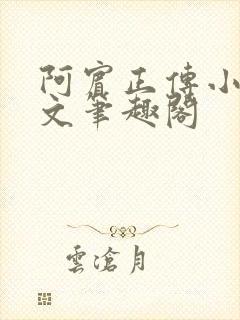 阿賓正傳小
文筆趣閣
雲滄月